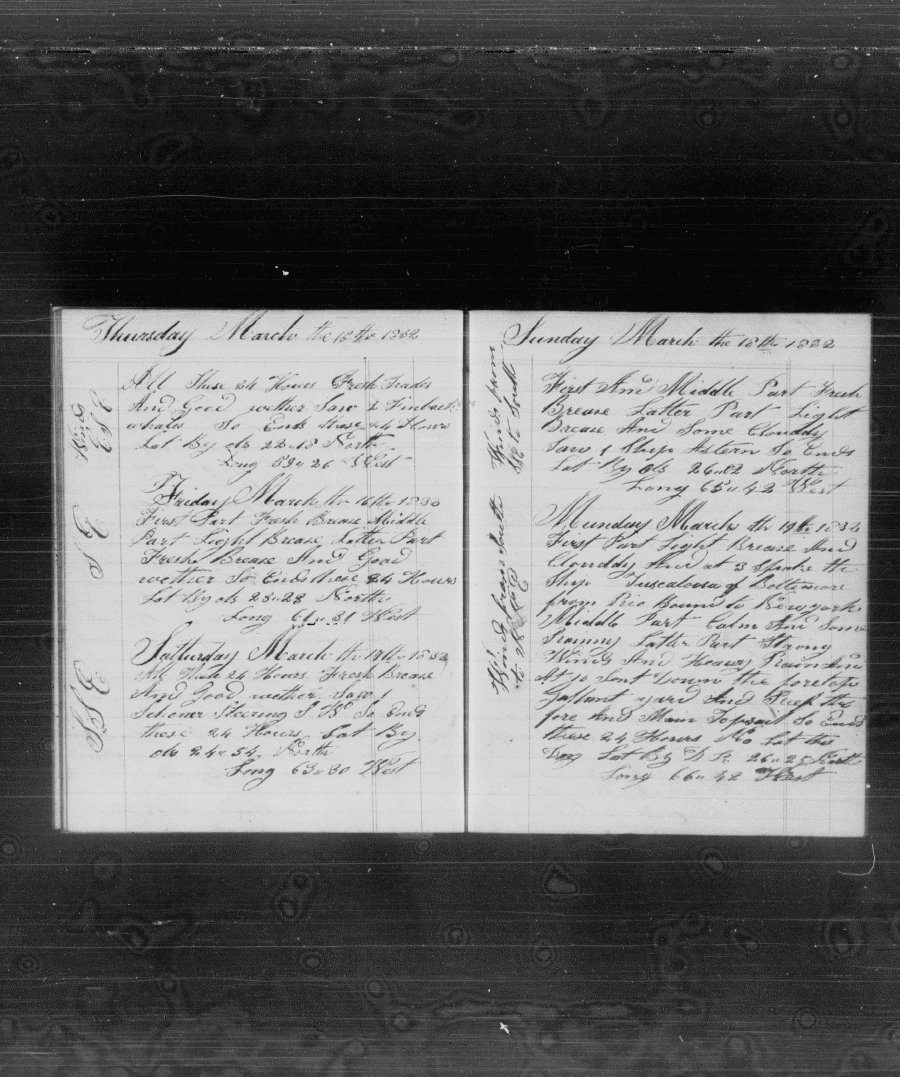 Thursday March the 15th 1832
Wind
ESE
All These 24 Hours Fresh Trades
And Good wether Saw 2 Finback
whales So Ends these 24 Hours
Lat By ob 22..13 North
Long 59..26 West
Friday March th 16th 1832
S E
First Part Fresh Brease Middle
Part Light Brease Latter Part
Fresh Brease And Good
wether So Ends these 24 Hours
Lat By ob 23..28 North
Long 61..31 West
Satturday March th 17th 1832
S E
All these 24 Hours Fresh Brease
And Good wether Saw 1
Schoner Steering S W So Ends
these 24 Hours Lat By
ob 24..54 North
Long 63..30 West
Sunday March the 18th 1832
Winds from
SE to South
First And Middle Part Fresh
Brease Latter Part Light
Brease And Some Clouddy
Saw 1 Ship Astern So Ends
Lat By ob 26..02 North
Long 65..42 West
Munday March th 19th 1832
Wind from South
to
First Part Light Brease And
Clouddy And at 3 Spoke the
Ship Tuscaloosa of Boltimore
from Rio Bound to Newyork
Middle Part Calm And Some
Latter Part Strong
Winds And Heavey Rain And
At 10 Sent Down the foretop
Gallant yard And Reef the
fore And Main Topsail So Ends
these 24 Hours No Lat this
Day Lat By D R 26..25 North
Long 66..42 West